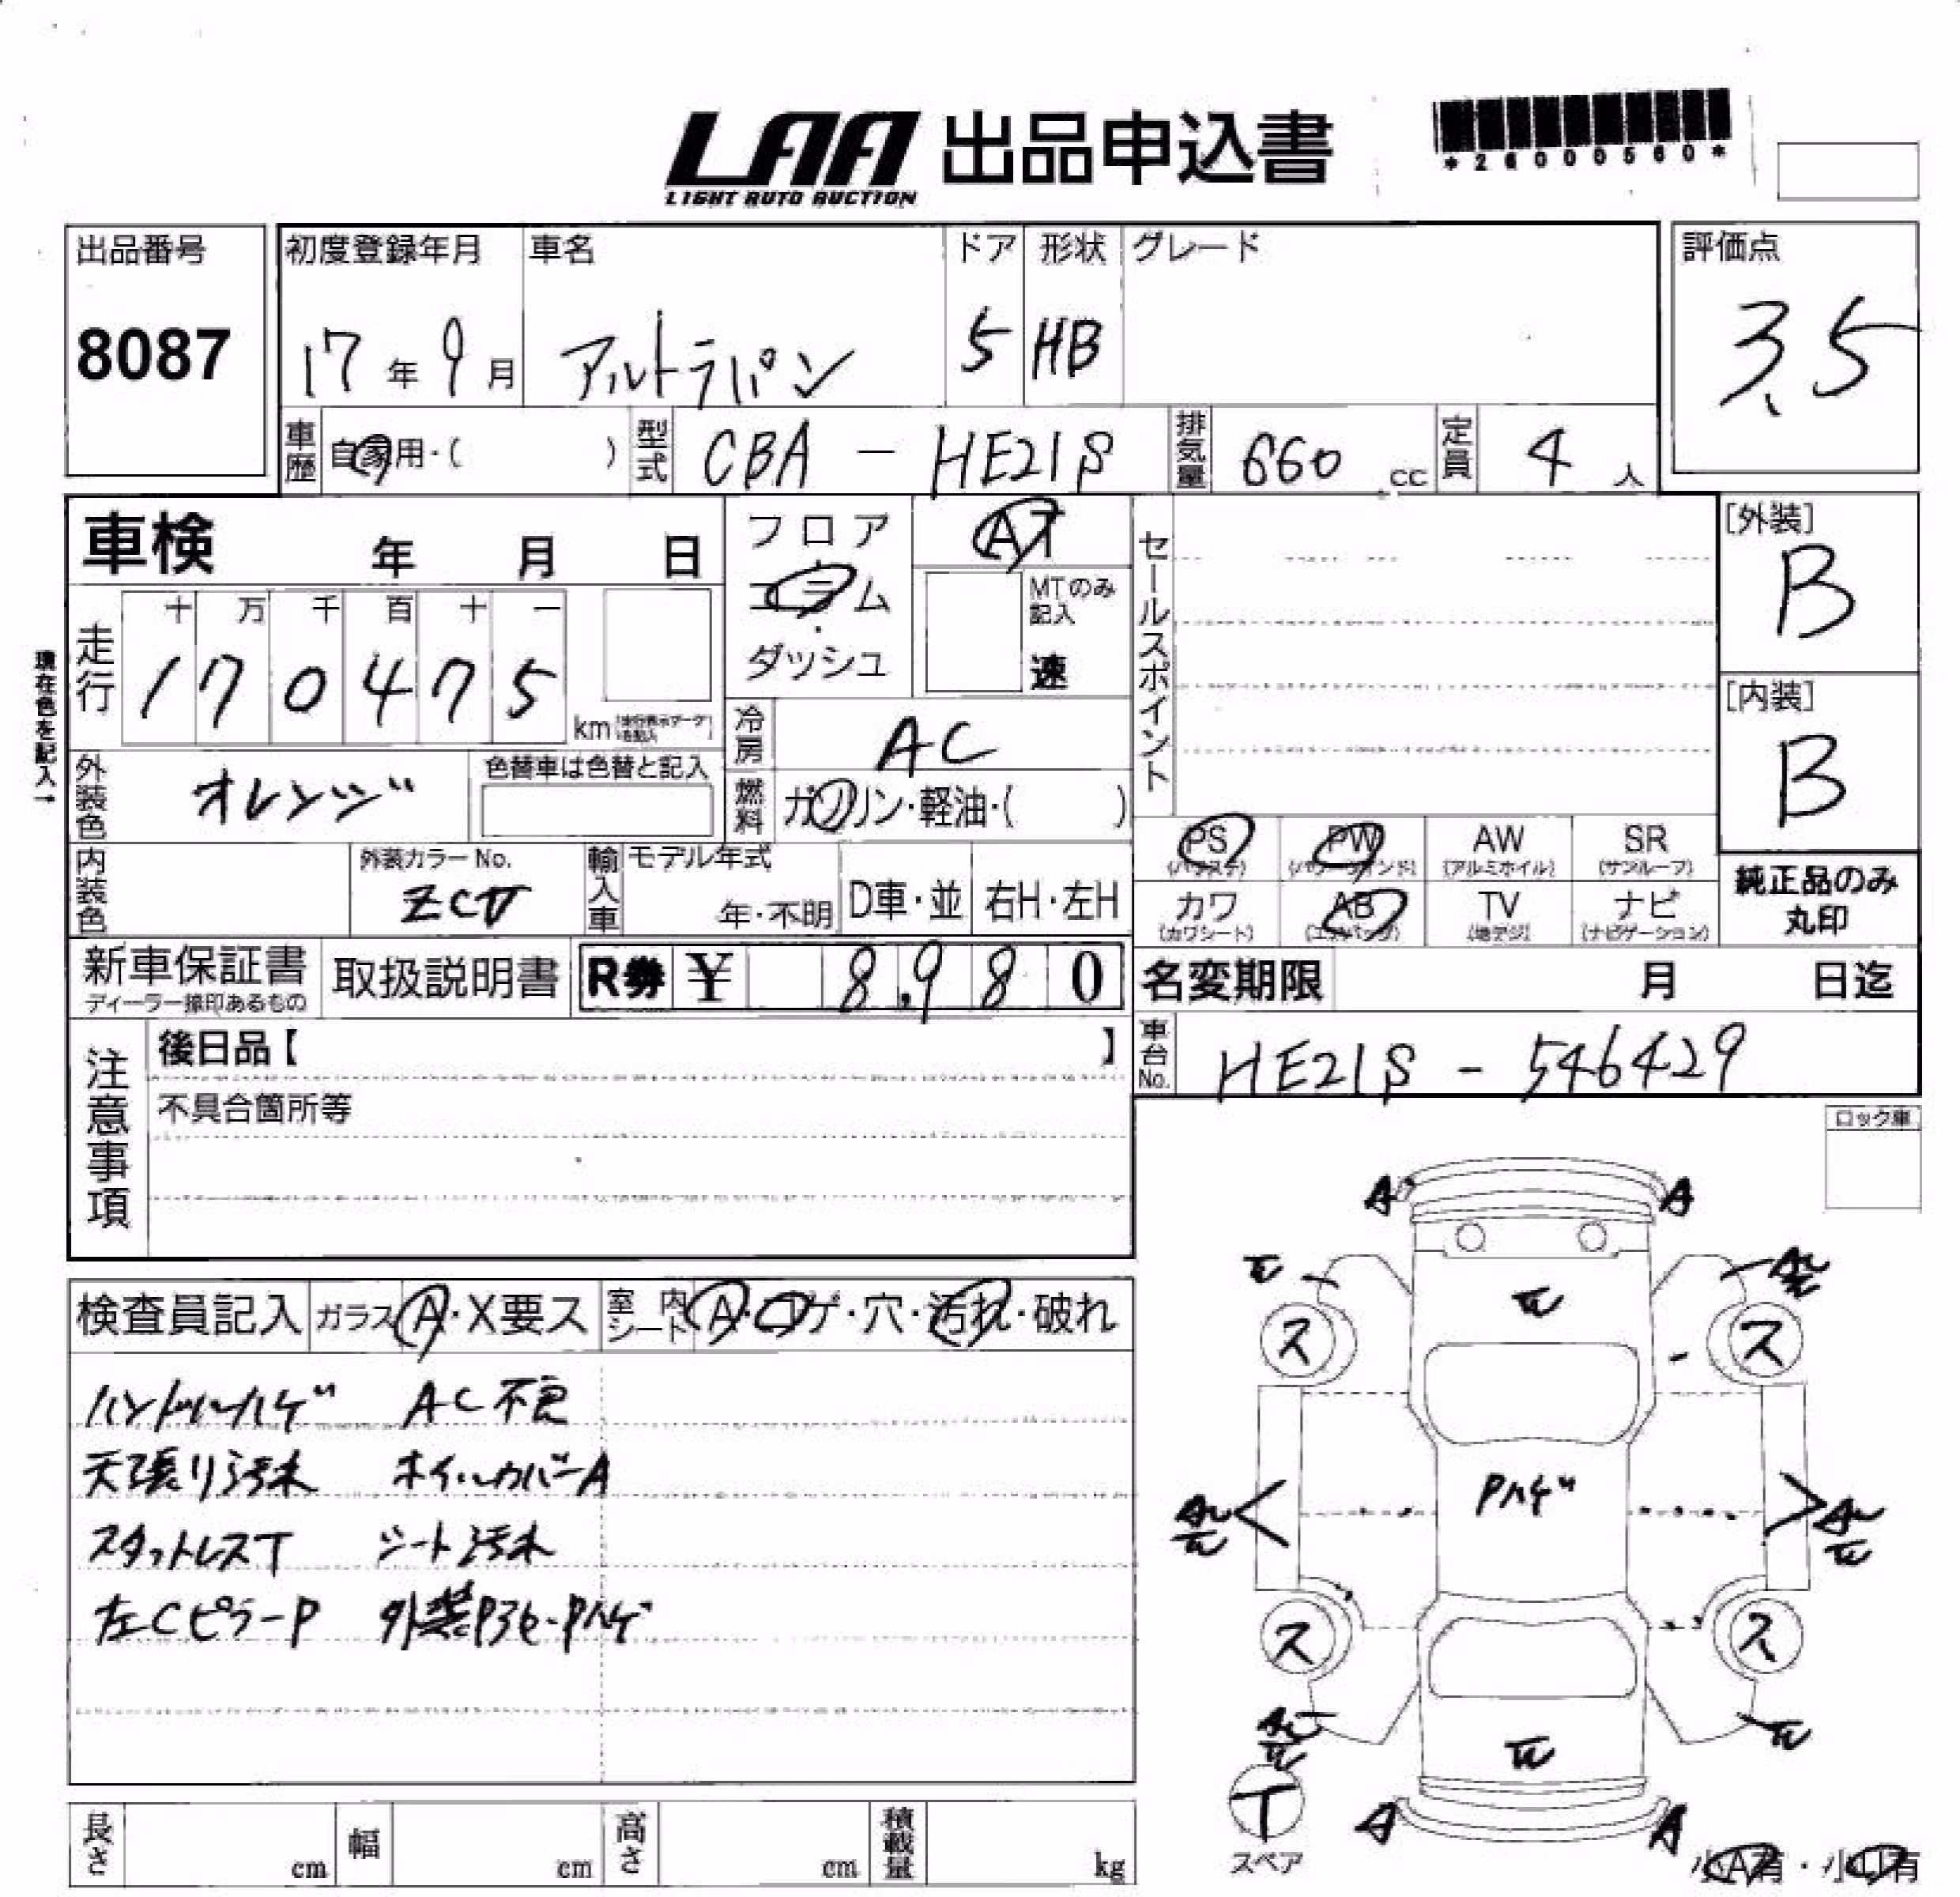 LAA 出品申込書
LIGHT AUTO AUCTION
*26000560*
出品番号
8087
初度登録年月
17年9月
車名
アルトラパン
ドア
5
形状
HB
グレード
評価点
3.5
車歴
自家用・( )
型式
CBA - HE21S
排気量
660 cc
定員
4 人
車検 年 月 日
フロア・コラム・ダッシュ
AT
MTのみ記入
速
セールスポイント
[外装]
B
[内装]
B
現在色を記入→
走行
十 万 千 百 十 一
1 7 0 4 7 5
km
冷房
AC
外装色
オレンジ
色替車は色替と記入
燃料
ガソリン・軽油・( )
内装色
外装カラーNo.
輸入車
モデル年式
年・不明
D車・並
右H・左H
PS
(パワステ)
PW
(パワーウインド)
AW
(アルミホイル)
SR
(サンルーフ)
カワ
(カワシート)
AB
(エアバッグ)
TV
(地デジ)
ナビ
(ナビゲーション)
純正品のみ丸印
新車保証書
ディーラー捺印あるもの
取扱説明書
R券 ¥ 8,980
名変期限 月 日迄
注意事項
後日品【 】
不具合箇所等
車台No.
HE21S - 546429
ロック車
検査員記入
ガラス A・X要ス
室内シート A・コゲ・穴・汚れ・破れ
ハンドルハゲ AC不良
天張り汚れ ホイルカバーA
スタットレスT シート汚れ
左CピラーP 外装Pヨレ・Pハゲ
A A
ス ス
Pハゲ
ス ス
T
スペア
A A
小A有・小U有
長さ cm
幅 cm
高さ cm
積載量 kg